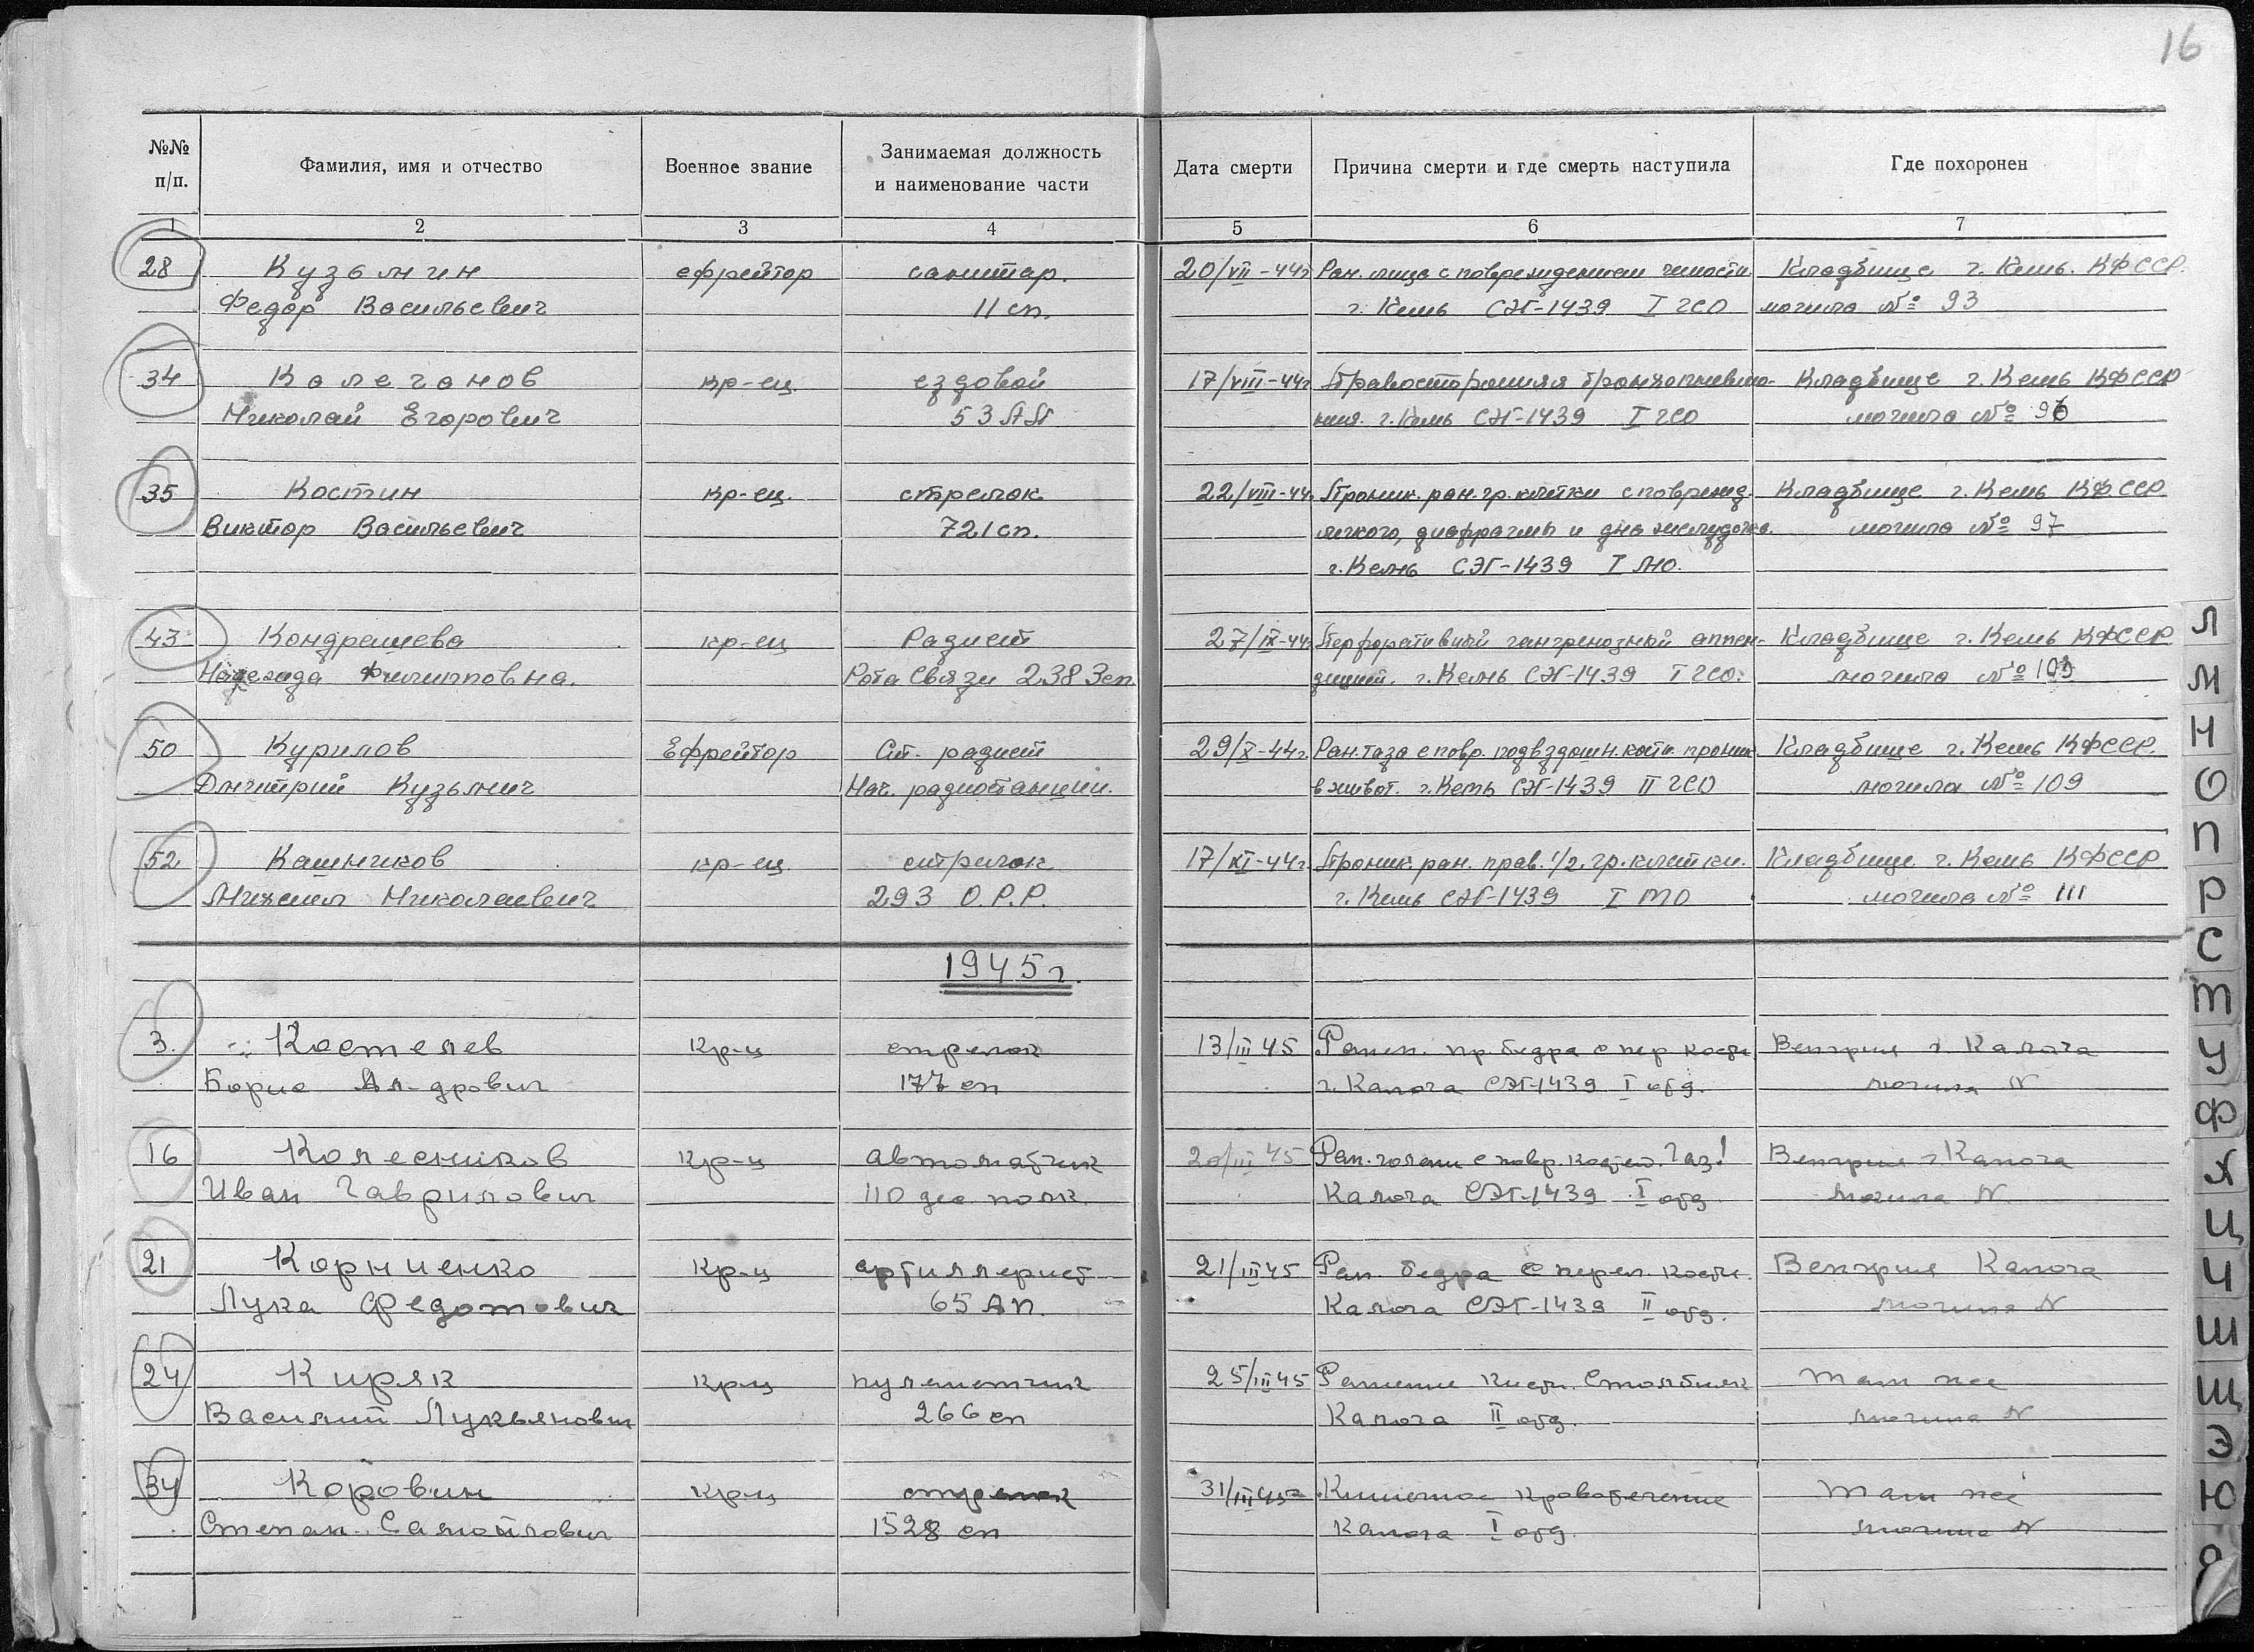 16
№№ п/п. Фамилия, имя и отчество Военное звание Занимаемая должность и наименование части Дата смерти Причина смерти и где смерть наступила Где похоронен
1 2 3 4 5 6 7
28 Кузьмин ефрейтор санитар. 20/VII-44г Ран. лица с повреждением челюсти Кладбище г. Кемь. КФССР.
Федор Васильевич 11 сп. г. Кемь СЭГ-1439 I ГСО могила № 93
34 Калеганов кр-ец. ездовой 17/VIII-44г Правосторонняя бронхопневмо- Кладбище г. Кемь КФССР
Николай Егорович 53 АП ния. г. Кемь СЭГ-1439 I ГСО могила № 96
35 Костин кр-ец. стрелок 22/VIII-44г. Проник. ран. гр. клетки с поврежд. Кладбище г. Кемь КФССР
Виктор Васильевич 721 сп. легкого, диафрагмы и дна желудочка. могила № 97
г. Кемь СЭГ-1439 I ЛО.
43 Кондрашева кр-ец Радист 27/IX-44г Перфоративный гангренозный аппен- Кладбище г. Кемь КФССР
Надежда Филипповна. Рота Связи 238 Зсп. дицит. г. Кемь СЭГ-1439 I ГСО. могила № 103
50 Курилов Ефрейтор Ст. радист 29/X-44г. Ран. таза с повр. подвздошн. кости проник. Кладбище г. Кемь КФССР.
Дмитрий Кузьмич Нач. радиостанции. в живот. г. Кемь СЭГ-1439 II ГСО могила № 109
52 Кашников кр-ец стрелок 17/XI-44г. Проник. ран. прав. 1/2. гр. клетки. Кладбище г. Кемь КФССР
Михаил Николаевич 293 О.Р.Р. г. Кемь СЭГ-1439 I ТО могила № 111
1945 г.
3. Костелев Кр-ц стрелок 13/III 45 Ранен. пр. бедра с пер кости Венгрия г. Калоча
Борис Ал-дрович 177 сп г. Калоча СЭГ-1439 I отд. могила N
16 Колесников Кр-ц автоматчик 20/III 45 Ран. голени с повр. костей. Газ! Венгрия г Калоча
Иван Гаврилович 110 дес. полк. Калоча СЭГ-1439 I отд могила N
21 Корниенко Кр-ц артиллерист 21/III 45 Ран. бедра с перел. кости. Венгрия Калоча
Лука Федотович 65 АП. Калоча СЭГ-1439 II отд. могила N
24 Киряк Кр-ц пулеметчик 25/III 45 Ранение кисти. Столбняк Там же
Василий Лукьянович 266 сп Калоча II отд. могила N
34 Коровин Кр-ц стрелок 31/III 45г Кишечное кровотечение Там же
Степан Самойлович 1528 сп Калоча I отд. могила N
Л
М
Н
О
П
Р
С
Т
У
Ф
Х
Ц
Ч
Ш
Щ
Э
Ю